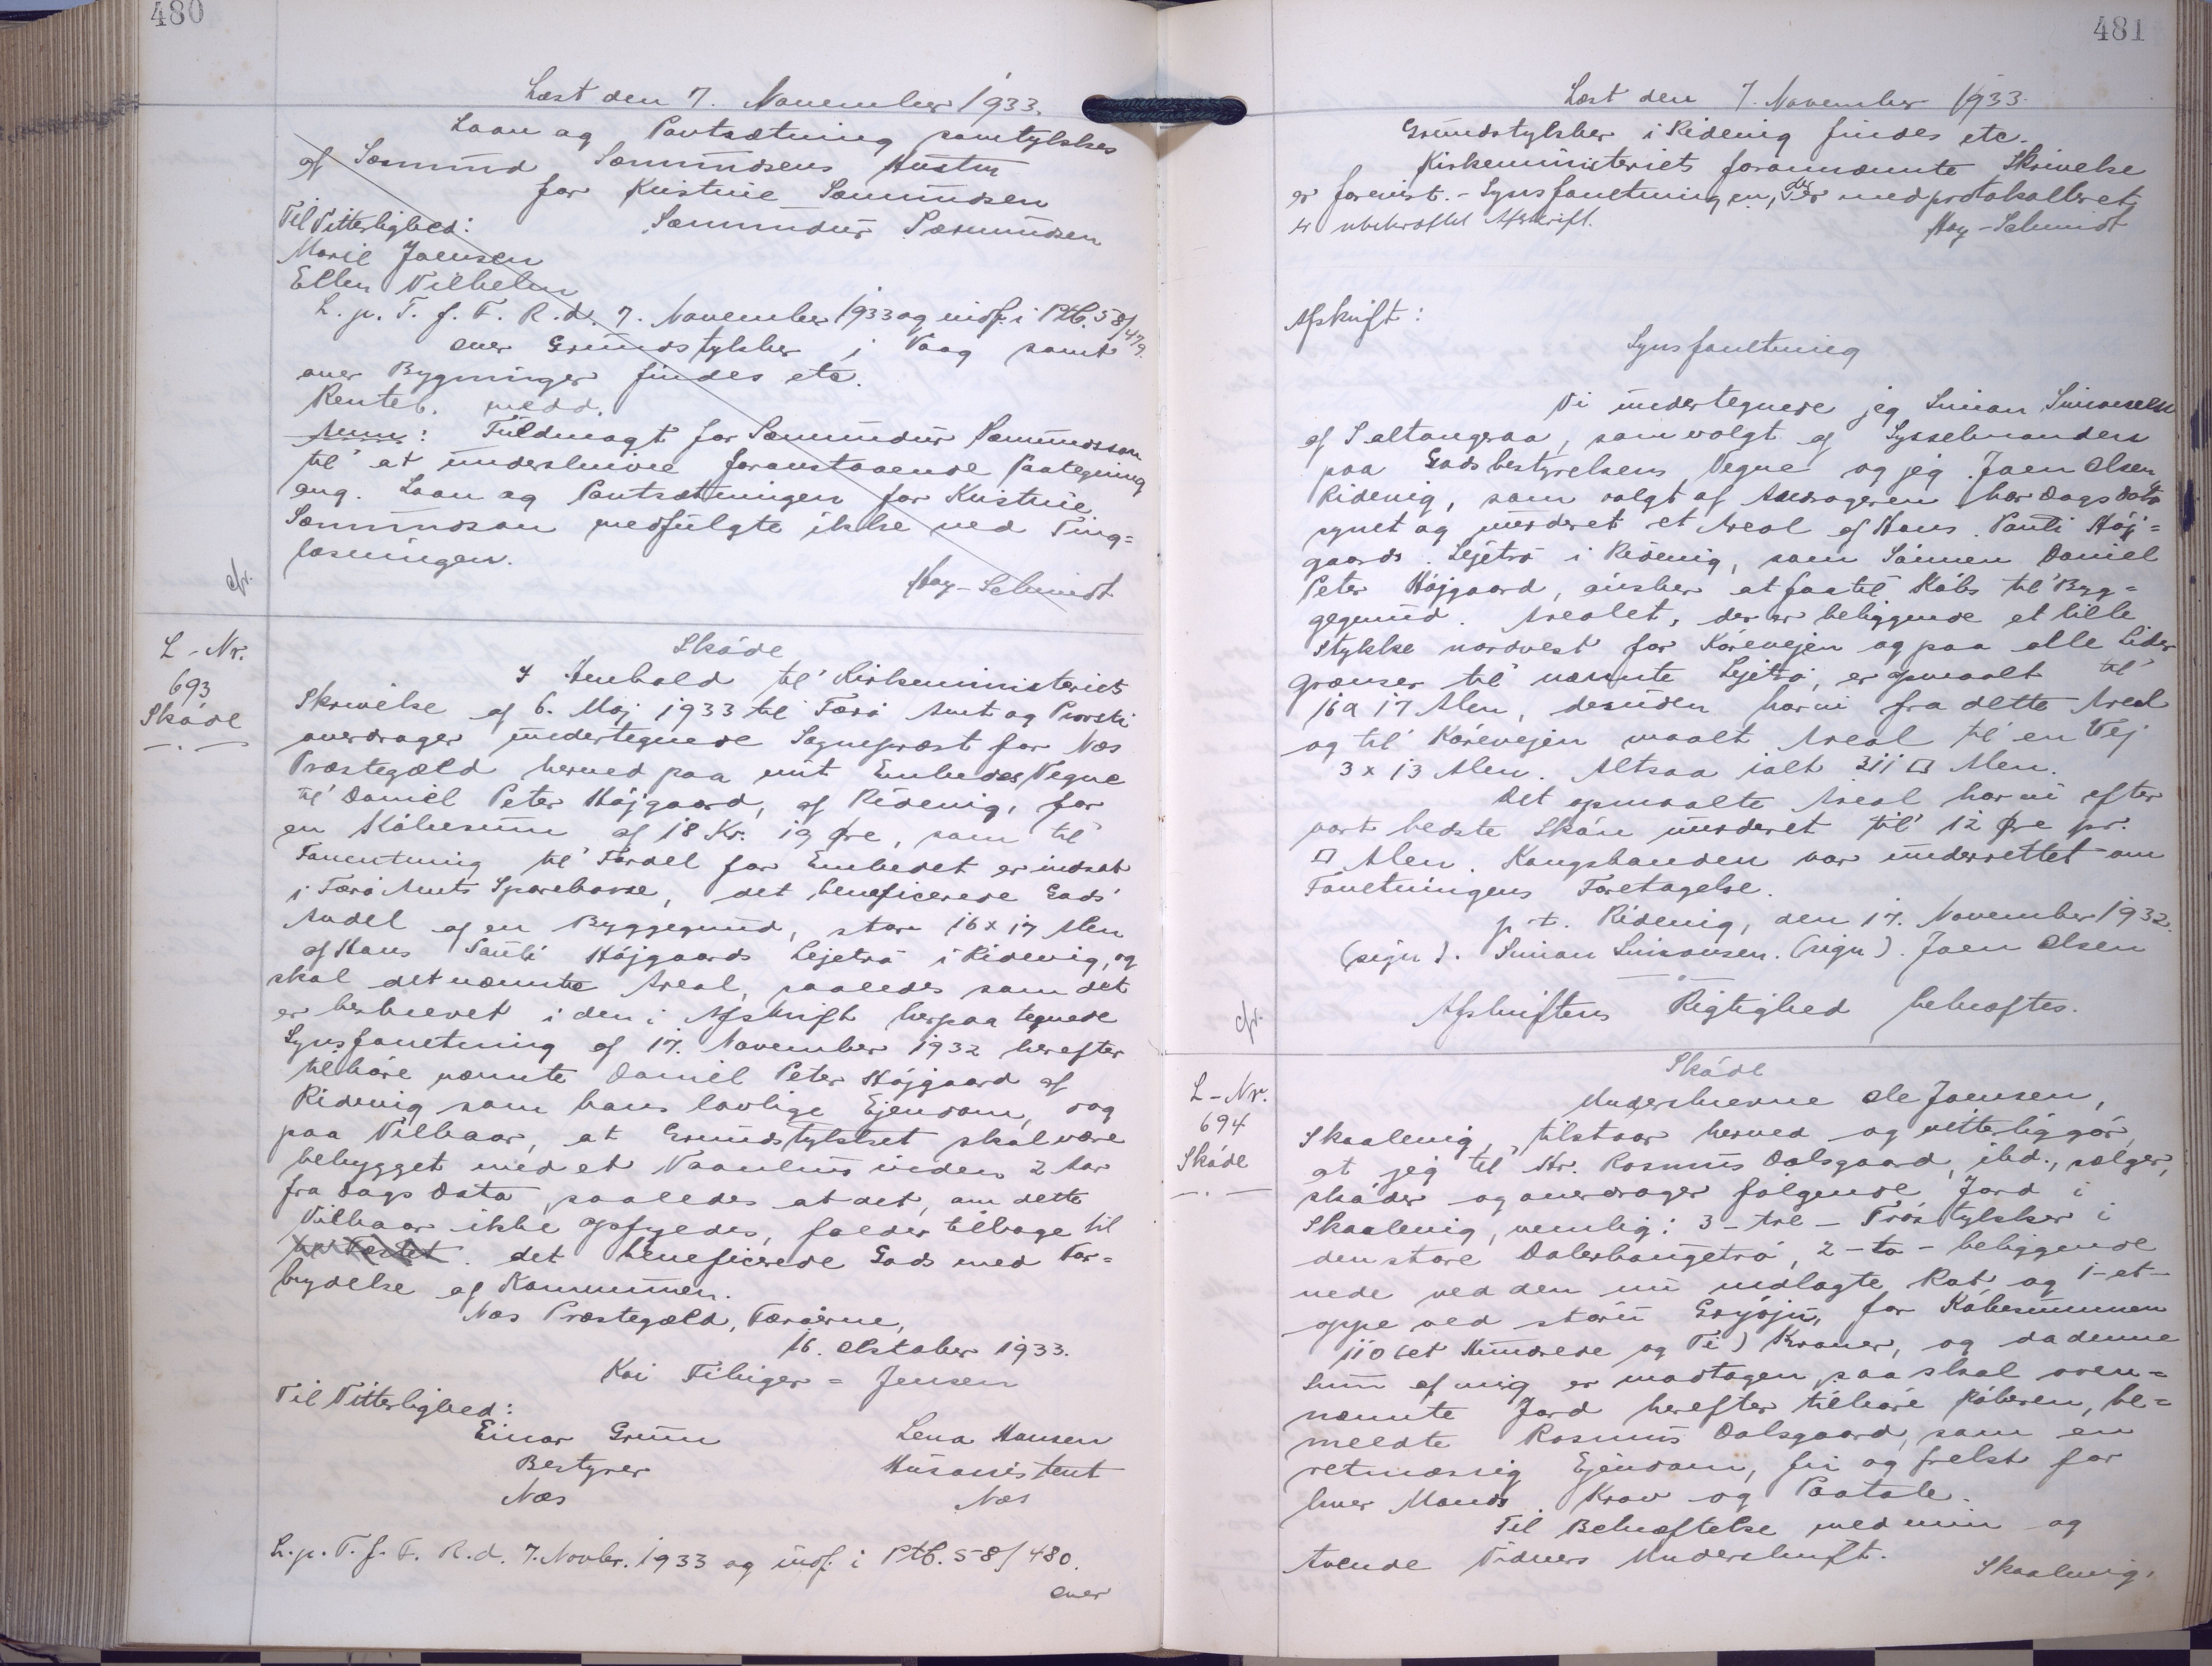 480
Læst den 7. November 1933.
Laan og Pantsætning samtykkes
af Sæmund Sæmundsens Hustru
for Kristine Sæmundsen
Til Vitterlighed: Sæmundur Sæmundsen
Marie Joensen
Ellen Vilhelm
L. p. T. f. F. R. d. 7. November 1933 og indf. i Ptb. 58/479.
over Grundstykker i Vaag samt
over Bygninger findes etc.
Renteb. medd.
Anm: Fuldmagt for Sæmundur Sæmundsson
til at underskrive foranstaaende Paategning
ang. Laan og Pantsætningen for Kristine
Sæmundson medfulgte ikke ved Ting=
læsningen.
cfr.
Hay-Schmidt
L-Nr.
693
Skøde
Skøde
I Henhold til Kirkeministeriets
Skrivelse af 6. Maj 1933 til Færø Amt og Provsti
overdrager undertegnede Sognepræst for Nes
Præstegæld herved paa mit Embedes Vegne
til Daniel Peter Højgaard, af Ridevig, for
en Købesum af 18 Kr. 19 Øre, som til
Forrentning til Fordel for Embedet er indsat
i Færø Amts Sparekasse, det beneficerede Gods'
Andel af en Byggegrund, stor 16 x 17 Alen
af Hans Pauli Højgaards Lejetrø i Ridevig, og
skal det nævnte Areal, saaledes som det
er beskrevet i den i Afskrift herpaa tegnede
Synsforretning af 17. November 1932 herefter
tilhøre nævnte Daniel Peter Højgaard af
Ridevig som hans lovlige Ejendom, dog
paa Vilkaar, at Grundstykket skal være
bebygget med et Vaanhus inden 2 Aar
fra Dags Dato, saaledes at det, om dette
Vilkaar ikke opfyldes, falder tilbage til
det beneficerede Gods med For=
brydelse af Kommunen.
Nes Præstegæld, Færøerne,
16. Oktober 1933.
Kai Fibiger = Jensen
Til Vitterlighed:
Einar Grunn Lena Hansen
Bestyrer Husassistent
Nes Nes
L. p. T. f. F. R. d. 7. Novbr. 1933 og indf. i Ptb. 58/480.
over
481
Læst den 7. November 1933.
Grundstykker i Ridevig findes etc.
Kirkeministeriets forannævnte Skrivelse
er forevist. - Synsforretningen, der er medprotokolleret,
er ubekræftet Afskrift.
Hay-Schmidt
Afskrift:
Synsforretning
Vi undertegnede jeg Simon Simonsen
af Saltangeraa, som valgt af Sysselmanden
paa Godsbestyrelsens Vegne og jeg Joen Olsen
Ridevig, som valgt af Andrageren har Dags Dato
synet og vurderet et Areal af Hans Pauli Høj=
gaards Lejetrø i Ridevig, som Sønnen Daniel
Peter Højgaard, ønsker at faa til Købs til Byg=
gegrund. Arealet, der er beliggende et lille
Stykke nordvest for Kørevejen og paa alle Sider
grænser til nævnte Lejetrø, er opmaalt til
16 a 17 Alen, desuden har vi fra dette Areal
og til Kørevejen maalt Areal til en Vej
3 x 13 Alen. Altsaa ialt 311 □ Alen.
Det opmaalte Areal har vi efter
vort bedste Skøn vurderet til 12 Øre pr.
□ Alen. Kongsbonden var underrettet om
Forretningens Foretagelse.
p. t. Ridevig, den 17. November 1932.
(sign). Simon Simonsen. (sign). Joen Olsen
Afskriftens Rigtighed bekræftes.
cfr.
L-Nr.
694
Skøde
Skøde
Underskrevne Ole Joensen,
Skaalevig, tilstaar herved og vitterliggør,
at jeg til Hr. Rasmus Dalsgaard, ibd., sælger,
skøder og overdrager følgende Jord i
Skaalevig, nemlig: 3-tre- Trøstykker i
den store Dalerhaugetrø, 2-to- beliggende
nede ved den nu nedlagte Rat og 1-et-
oppe ved støru Grrýøju, for Købesummen
110 (et Hundrede og Ti) Kroner, og da denne
Sum af mig er modtagen, saa skal oven=
nævnte Jord herefter tilhøre Køberen, be=
meldte Rasmus Dalsgaard, som en
retmæssig Ejendom, fri og frelst for
hver Mands Krav og Paatale.
Til Bekræftelse med min og
tvende Vidners Underskrift.
Skaalevig,